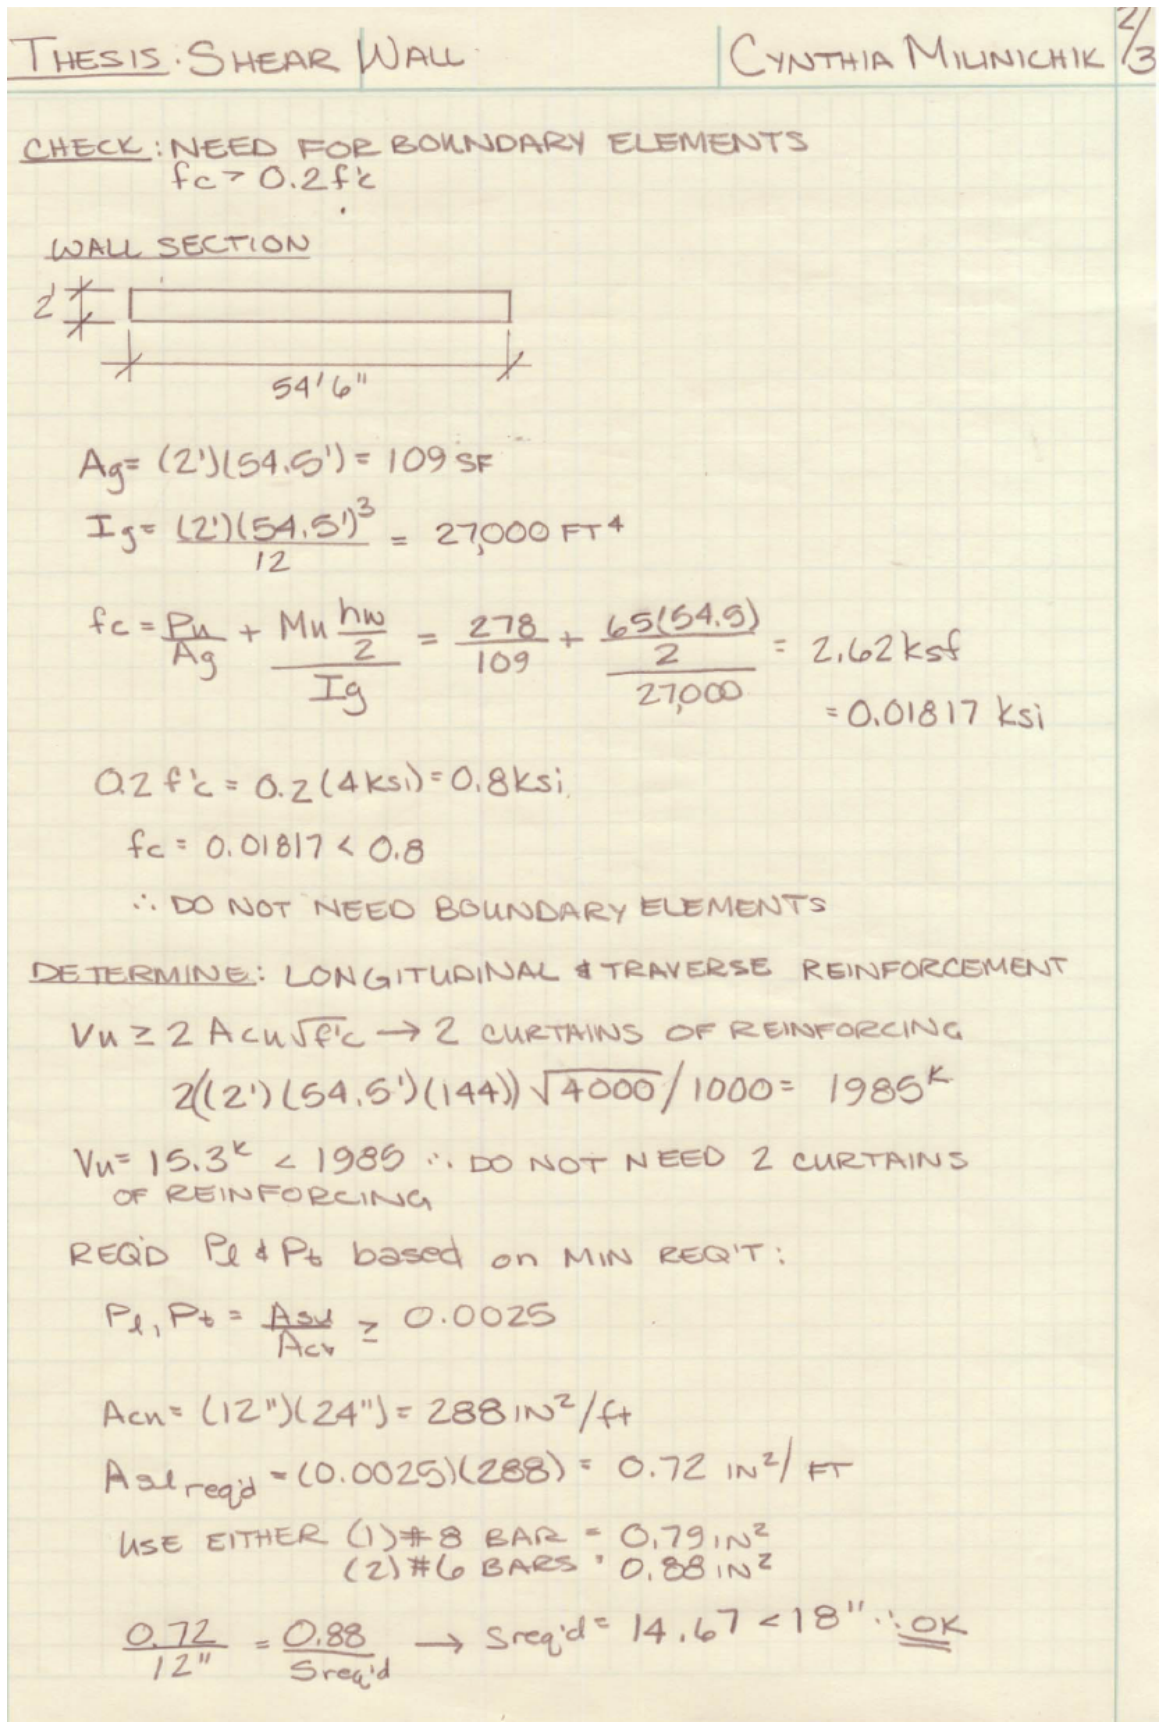 THESIS: SHEAR WALL
CYNTHIA MILINICHIK 2/3
CHECK: NEED FOR BOUNDARY ELEMENTS
fc > 0.2 f'c
WALL SECTION
2'
54'6"
Ag = (2')(54.5') = 109 SF
Ig = (2')(54.5')³/12 = 27,000 FT⁴
fc = Pu/Ag + (Mu hw/2)/Ig = 278/109 + (65(54.5)/2)/27,000 = 2.62 ksf
= 0.01817 ksi
0.2 f'c = 0.2 (4 ksi) = 0.8 ksi
fc = 0.01817 < 0.8
∴ DO NOT NEED BOUNDARY ELEMENTS
DETERMINE: LONGITUDINAL & TRAVERSE REINFORCEMENT
Vu ≥ 2 Acu √f'c → 2 CURTAINS OF REINFORCING
2((2')(54.5')(144)) √4000 / 1000 = 1985ᴷ
Vu = 15.3ᴷ < 1985 ∴ DO NOT NEED 2 CURTAINS
OF REINFORCING
REQ'D Pℓ & Pt based on MIN REQ'T:
Pℓ, Pt = Asv/Acv ≥ 0.0025
Acn = (12")(24") = 288 IN²/ft
Asℓ req'd = (0.0025)(288) = 0.72 IN²/FT
USE EITHER (1) #8 BAR = 0.79 IN²
(2) #6 BARS = 0.88 IN²
0.72/12" = 0.88/Sreq'd → Sreq'd = 14.67 < 18" ∴ OK